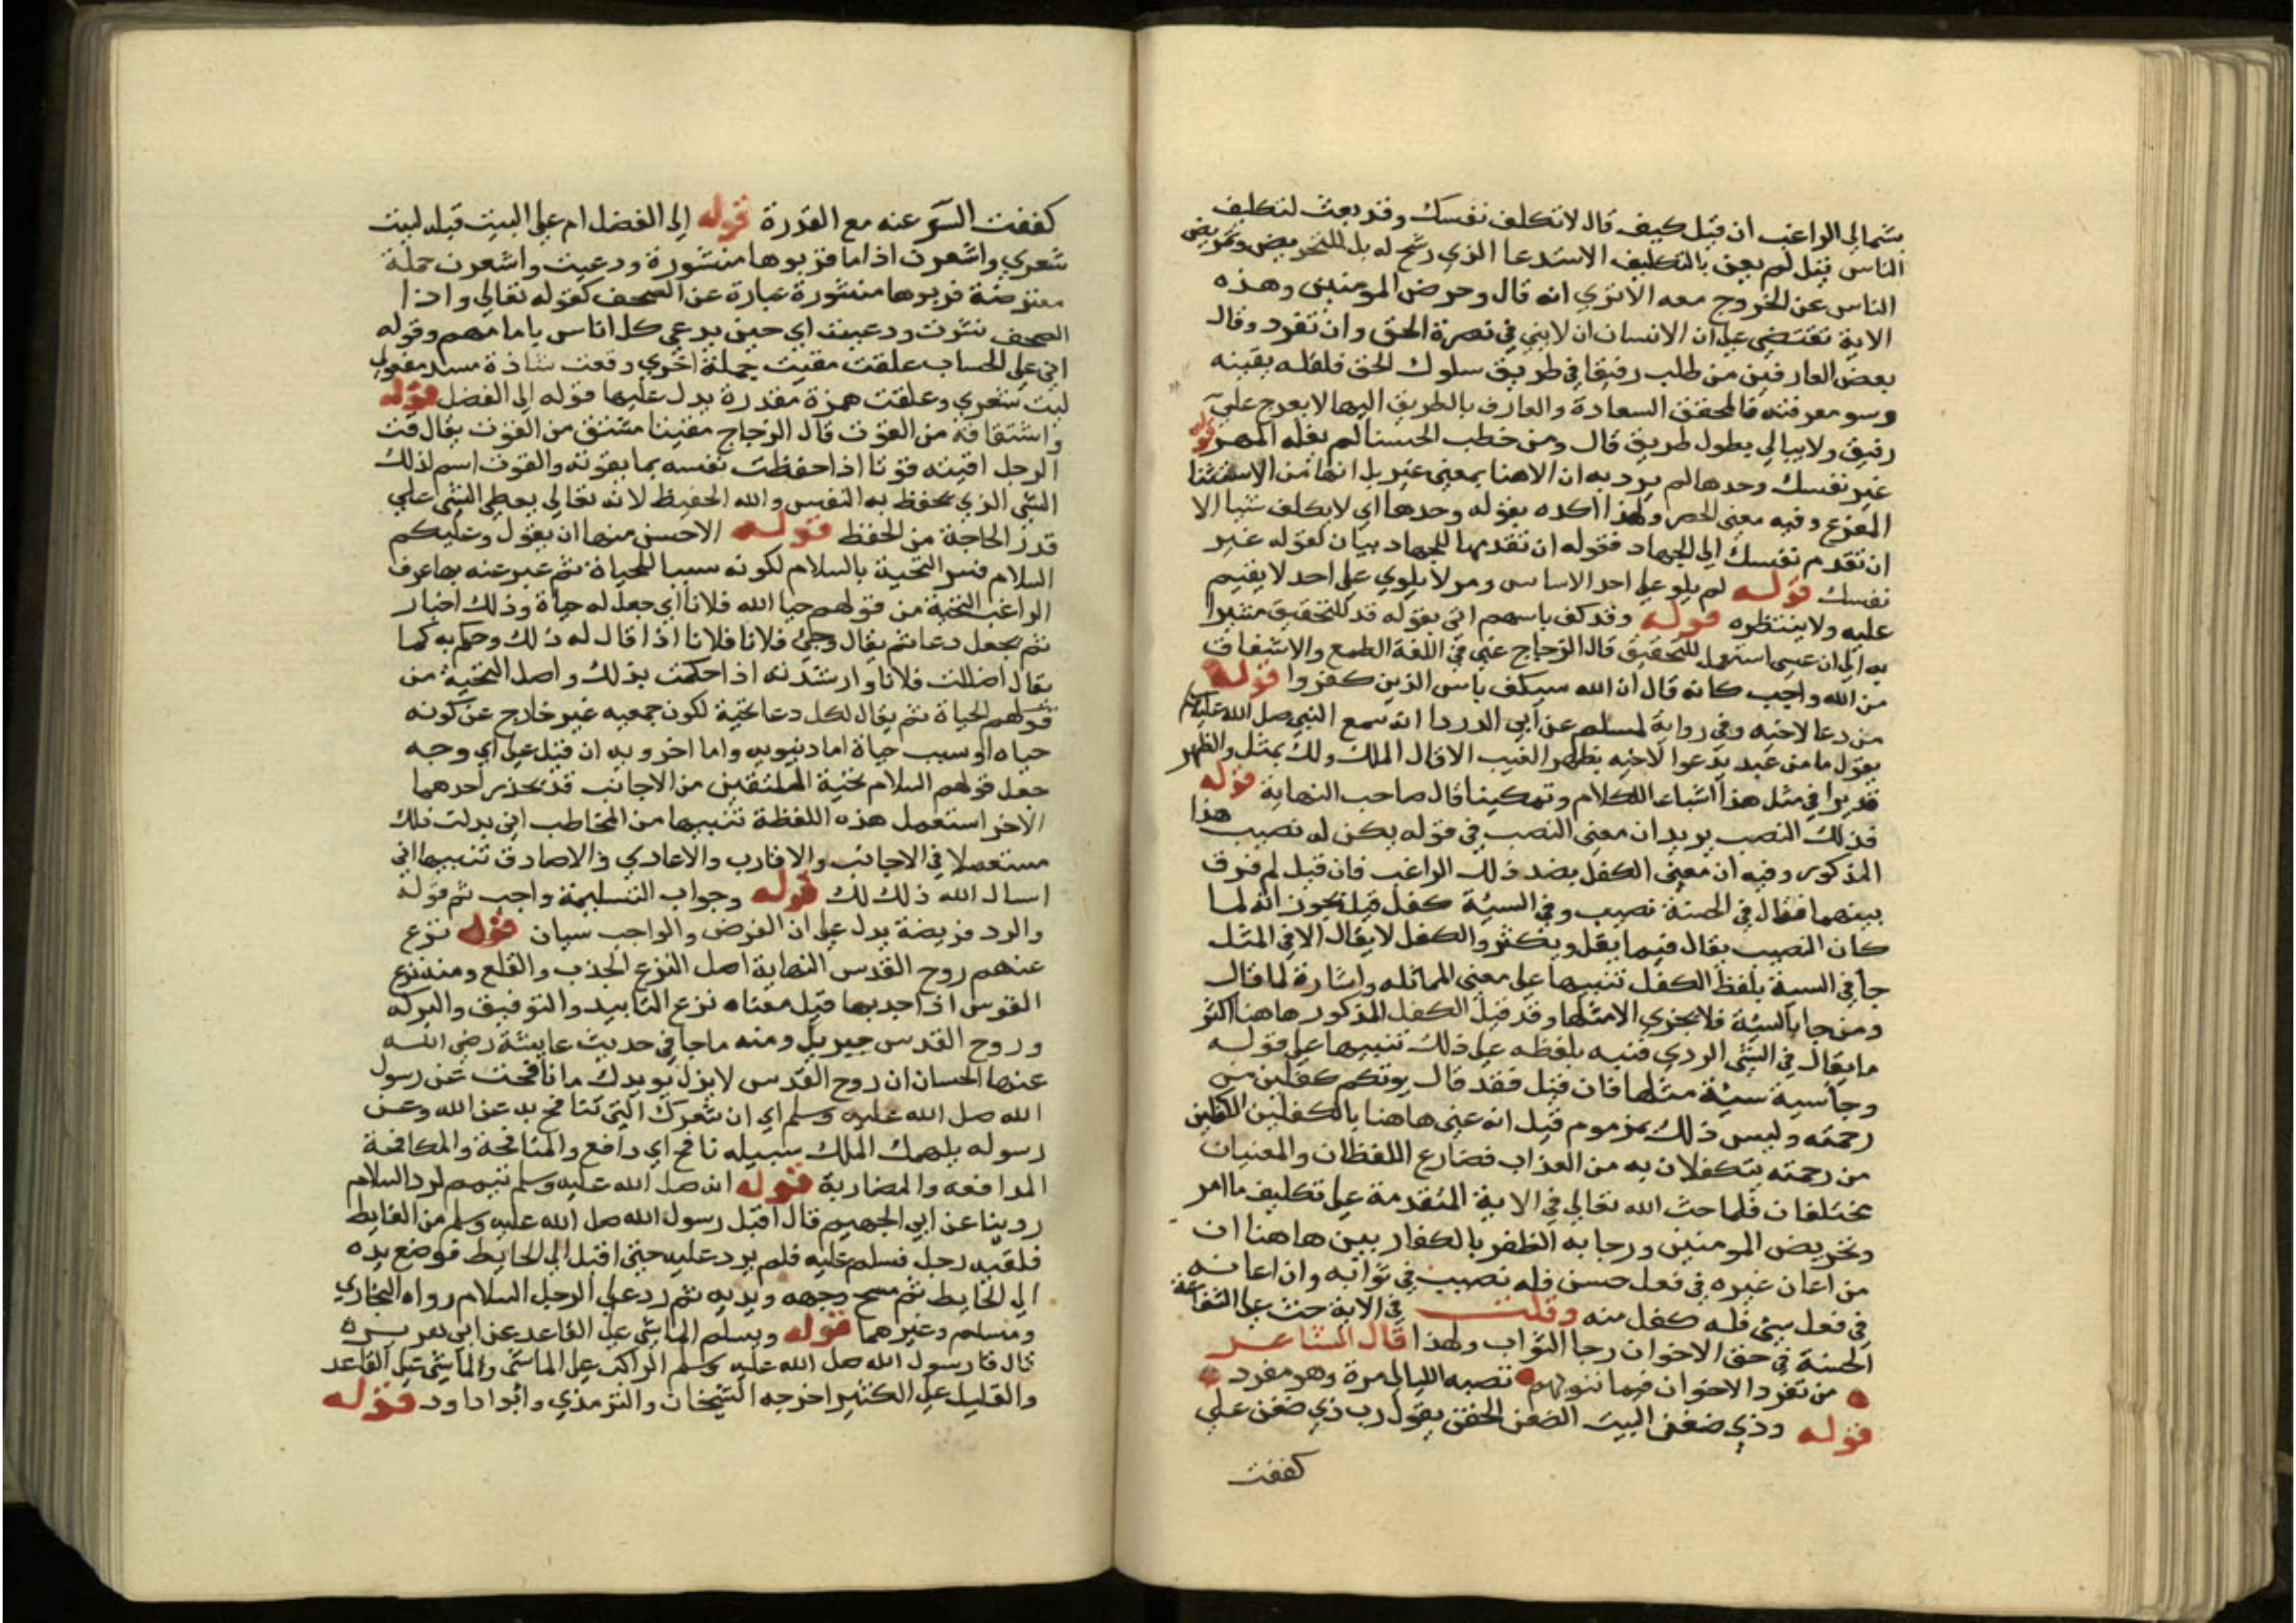 شمالي الراغب ان قيل كيف قال لا تكلف نفسك وقد بعث لتكليف
الناس قيل لم يعن بالتكليف الاستدعا الذي رشح له بل للتحريض
الناس عن الخروج معه الاتري انه قال وحرض المومنين وهذه
الاية تقتضي علي ان الانسان ان لايني في نصرة الحق وان تفرد وقال
بعض العارفين من طلب رفيقا في طريق سلوك الحق فلقله يقينه
وسو معرفته فالمحقق السعادة والعارف بالطريق اليها لا يعرج علي
رفيق ولا يبالي بطول طريق قال ومن خطب الحسنا لم يغله المهر قوله
غير نفسك وحدها لم يرد به ان الا هنا بمعني غير بل انها من الاستثنا
المفرغ وفيه معني الحصر ولهذا اكده بقوله وحدها اي لا يكلف شيا الا
ان تقدم نفسك الي الجهاد فقوله ان تقدمها للجهاد بيان لقوله غير
نفسك قوله لم يلو علي احد الاساس ومر لا يلوي علي احد لا يقيم
عليه ولا ينتظره قوله وقد كف باسهم اتي بقوله قد للتحقيق مشيرا
به الي ان عسي استعمل للتحقيق قال الزجاج عسي في اللغة الطمع والاشفاق
من الله واجب كانه قال ان الله سيكف باس الذين كفروا قوله
من دعا لاخيه وفي رواية لمسلم عن ابي الدردا انه سمع النبي صل الله عليه وسلم
يقول ما من عبد يدعوا لاخيه بظهر الغيب الا قال الملك ولك بمثل والظهر
قد يزاد في مثل هذا اشباعا للكلام وتمكينا قال صاحب النهاية قوله
فذلك النصب يريد ان معني النصب في قوله يكن له نصيب هذا
المذكور وفيه ان معني الكفل بضد ذلك الراغب فان قيل لم فرق
بينهما فقال في الحسنة نصيب وفي السيئة كفل قيل يجوز انه لما
كان النصيب يقال فيما يقل ويكثر والكفل لا يقال الا في المثل
جا في السيئة بلفظ الكفل تنبيها علي معني المماثله واشارة لما قال
ومن جا بالسيئة فلا يجزي الا مثلها وقد قيل الكفل المذكور هاهنا اكثر
ما يقال في الشي الردي فنبه بلفظه علي ذلك تنبيها علي قوله
وجزا سية سيئة مثلها فان قيل فقد قال يوتكم كفلين من
رحمته وليس ذلك بمذموم قيل انه عني هاهنا بالكفلين الكفلين
من رحمته يتكفلان به من العذاب فضارع اللفظان والمعنيان
مختلفان فلما حث الله تعالي في الاية المتقدمة علي تكليف ما امر
وتحريض المومنين ورجا به الظفر بالكفار بين هاهنا ان
من اعان غيره في فعل حسن فله نصيب في ثوابه وان اعانه
في فعل سيئ فله كفل منه وقلت في الاية حث علي الشفاعة
الحسنة في حق الاخوان رجا الثواب ولهذا قال الشاعر
من تفرد الاخوان فيما ننوبهم تصبه الليالي مرة وهو مفرد
قوله وذي ضغن البيت الضغن الحقد يقول رب ذي ضغن علي
كففت
كففت السوء عنه مع القدرة قوله الي الفضل ام علي البيت قبله ليت
شعري واشعرن اذا ما قربوها منشورة ودعيت واشعرن جملة
معترضة قربوها منشورة عبارة عن الصحف كقوله تعالي واذا
الصحف نشرت ودعيت اي حين يدعي كل اناس بامامهم وقوله
اني علي الحساب علقت مقيت جملة اخري وقعت سادة مسد مفعولي
ليت شعري وعلقت همزة مقدرة يدل عليها قوله الي الفضل قوله
واشتقاقه من القوت قال الزجاج مقيتا مشتق من القوت يقال قت
الرجل اقيته قوتا اذا حفظت نفسه بما يقوته والقوت اسم لذلك
الشي الذي يحفظ به النفس والله الحفيظ لانه تعالي يعطي الشي علي
قدر الحاجة من الحفظ قوله الاحسن منها ان يقول وعليكم
السلام فسر التحية بالسلام لكونه سببا للحياة ثم عبر عنه بها عرف
الراغب التحية من قولهم حيا الله فلانا اي جعل له حياة وذلك اخبار
ثم يجعل دعا ثم يقال وحيي فلانا فلانا اذا قال له ذلك وحكم به كما
يقال اضللت فلانا وارشدته اذا حكمت بذلك واصل التحية من
قولهم الحياة ثم يقال لكل دعا تحية لكون جمعيه غير خارج عن كونه
حياه او سبب حياة اما دنيويه واما اخرويه ان قيل علي اي وجه
جعل قولهم السلام تحية الملتقين من الاجانب قد يحذر احدهما
الاخر استعمل هذه اللفظة تنبيها من المخاطب اني بدلت تلك
مستعملا في الاجانب والاقارب والاعادي والاصادق تنبيها اني
اسال الله ذلك لك قوله وجواب التسليمة واجب ثم قوله
والرد فريضة يدل علي ان الفرض والواجب سيان قوله نزع
عنهم روح القدس النهاية اصل النزع الجذب والقلع ومنه نزع
القوس اذا جذبها قيل معناه نزع التاييد والتوفيق والبركه
وروح القدس جبريل ومنه ما جا في حديث عايشة رضي الله
عنها الحسان ان روح القدس لا يزل يويدك ما نافحت عن رسول
الله صل الله عليه وسلم اي ان شعرك الذي تنافح به عن الله وعن
رسوله يلهمك الملك سبيله نافح اي دافع والمنافحة والمكافحة
المدافعه والمضاربة قوله انه صل الله عليه وسلم تيمم لرد السلام
روينا عن ابي الجهيم قال اقبل رسول الله صل الله عليه وسلم من الغايط
فلقيه رجل فسلم عليه فلم يرد عليه حتي اقبل الي الحايط فوضع يده
الي الحايط ثم مسح وجهه ويديه ثم رد علي الرجل السلام رواه البخاري
ومسلم وغيرهما قوله ويسلم الماشي علي القاعد عن ابي هريرة
قال قا رسول الله صل الله عليه وسلم الراكب علي الماشي والماشي علي القاعد
والقليل علي الكثير اخرجه الشيخان والترمذي وابوا داود قوله